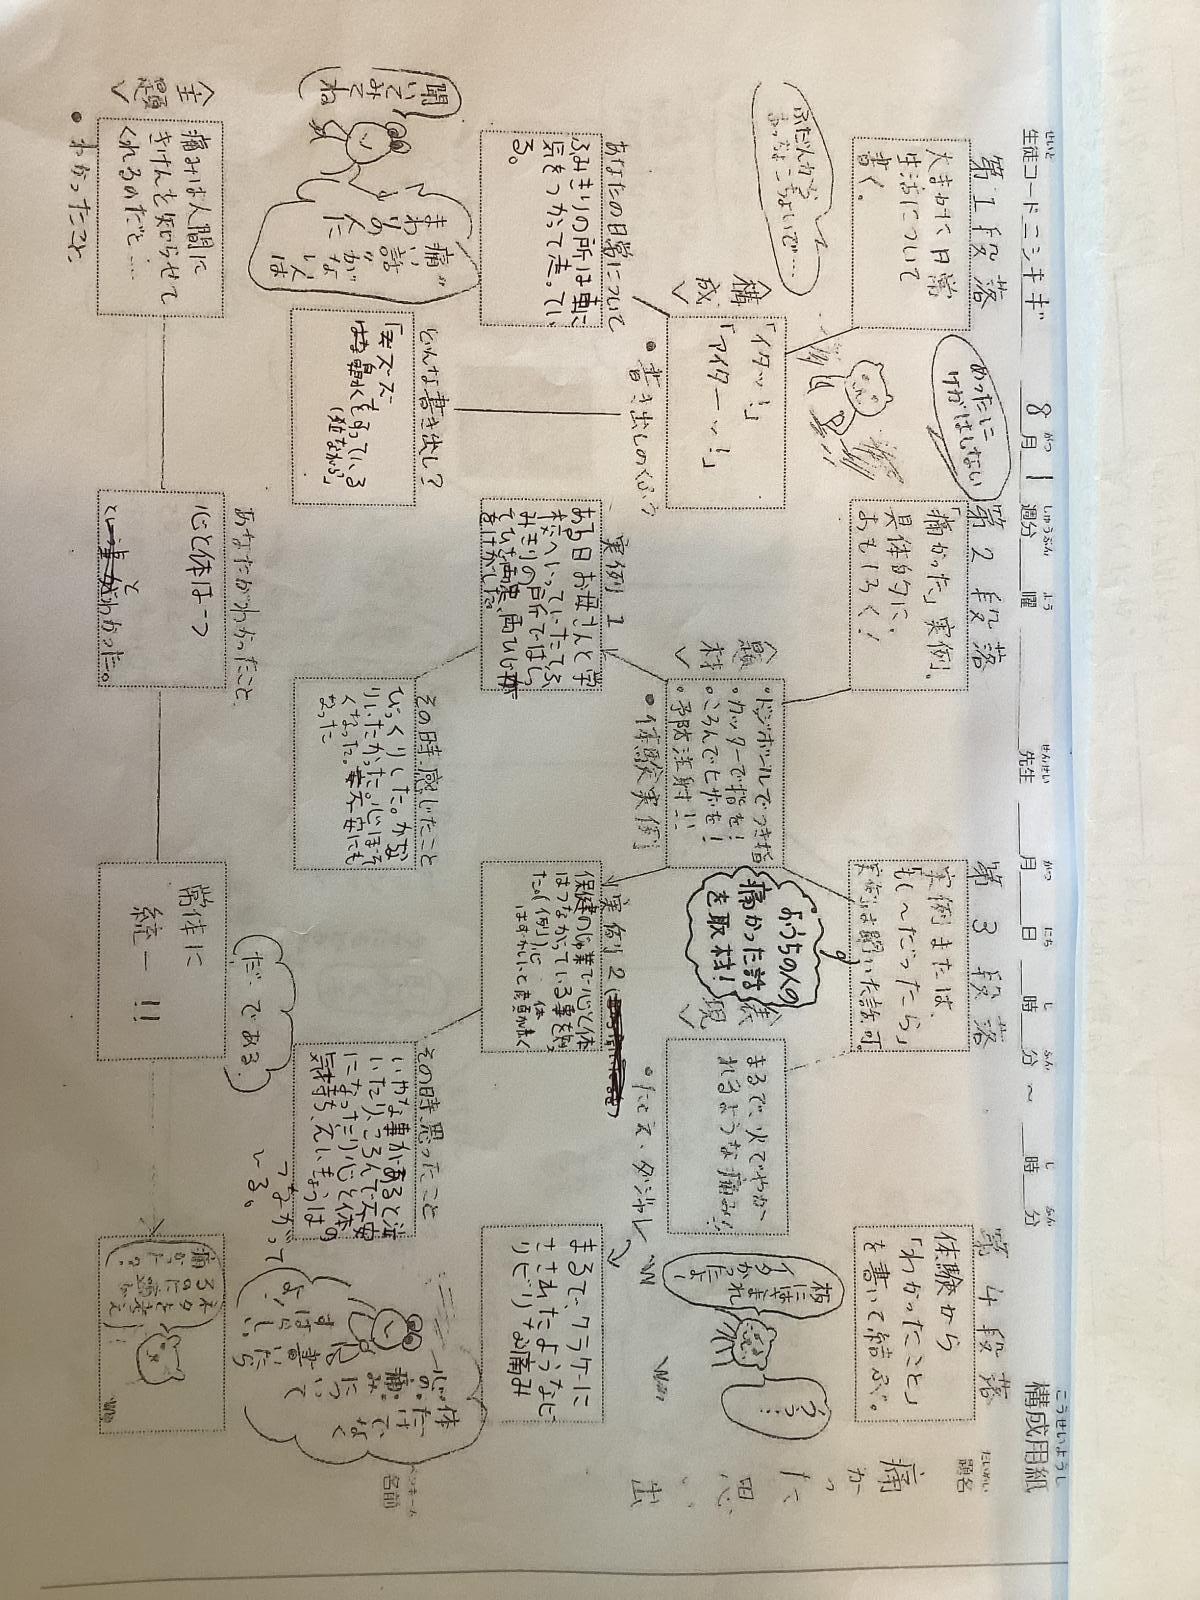 構成用紙
こうせいようし
せいと
生徒コード ニシキギ
8月1週分
がつ
しゅうぶん
曜
よう
先生
せんせい
月 日 時 分 〜 時 分
がつ にち じ ふん じ ふん
題名
だいめい
痛かった思い出
ペンネーム
名前
第1段落
大まかに、日常
生活について
書く。
第2段落
「痛かった」実例。
具体的に、
おもしろく!
第3段落
実例または、
「もし〜だったら」
実例は聞いた話可。
第4段落
体験から
「わかったこと」
を書いて結ぶ。
めったに
けがはしない
〈構成〉
「イタッ!」
「アイターッ!」
・書き出しのくふう
〈題材〉
・ドッジボールでつき指
・カッターで指を!
・ころんでヒザを!
・予防注射!!
・体験実例
おうちの人の
痛かった話
を取材!
〈表現〉
まるで、火でやか
れるような痛み!!
・たとえ・ダジャレ
板
にはさま
れ
イタ
かった
よ!
あなたの日常について
ふみきりの所は車に
気をつかって走ってい
る。
実例1
ある日お母さんと学
校へいっていたてふ
みきりの所でころ
んでひざ両ひじ
をけがした。
実例2
保健のじゅ業で心と体
はつながっている事を知っ
た。(例)心 体
はずかしいと真赤
まるで、クラゲに
さされたようなピ
リピリな痛み
どんな書き出し?
「ススズー
はな水をすっている
(泣ながら)」
その時、感じたこと
びっくりした。かな
りいたかった。心ぼそ
くなった。不安にも
なった
その時、思ったこと
いやな事があると泣
いたり、ころんで不安
になったり心と体の
気持ち、えいきょうは
つながって
いる。
聞いて
みてね
痛い話がない人は
まわりの人に
体だけでなく
心の痛みについて
書いたら
すばらしい
よ!
〈主題〉
痛みは人間に
きけんを知らせて
くれるのだと……
・わかったこと
あなたがわかったこと
心と体は一つ
とわかった。
常体に
統一!!
「だ、である」